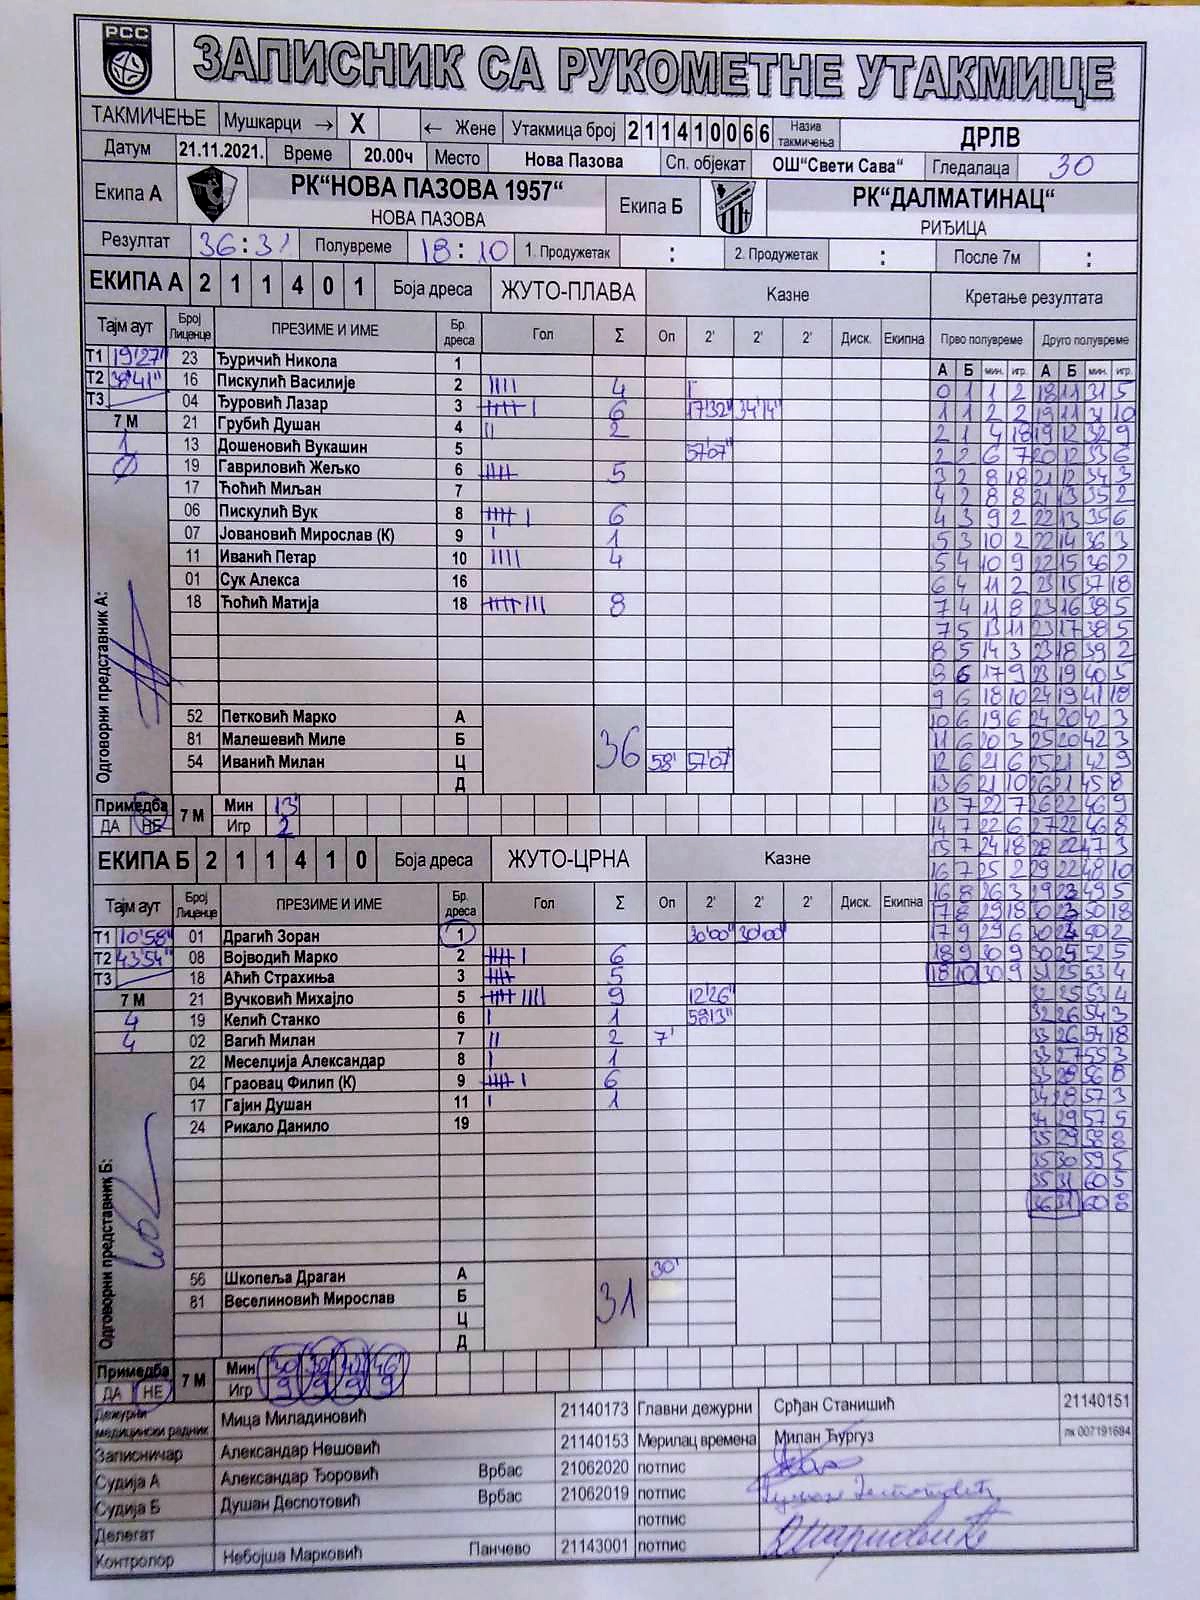 РСС
ЗАПИСНИК СА РУКОМЕТНЕ УТАКМИЦЕ
ТАКМИЧЕЊЕ Мушкарци → X ← Жене Утакмица број 211410066 Назив такмичења ДРЛВ
Датум 21.11.2021. Време 20.00ч Место Нова Пазова Сп. објекат ОШ"Свети Сава" Гледалаца 30
Екипа А РК"НОВА ПАЗОВА 1957" НОВА ПАЗОВА Екипа Б РК"ДАЛМАТИНАЦ" РИЂИЦА
Резултат 36:31 Полувреме 18:10 1. Продужетак : 2. Продужетак : После 7м :
ЕКИПА А 211401 Боја дреса ЖУТО-ПЛАВА Казне Кретање резултата
Тајм аут Број Лиценце ПРЕЗИМЕ И ИМЕ Бр. дреса Гол Σ Оп 2' 2' 2' Диск. Екипна Прво полувреме Друго полувреме
А Б мин. игр. А Б мин. игр.
Т1 19'27" 23 Ђуричић Никола 1
Т2 38'41" 16 Пискулић Василије 2 4
Т3 04 Ђуровић Лазар 3 6 17'32" 34'14"
7 М 21 Грубић Душан 4 2
1 13 Дошеновић Вукашин 5 57'07"
0 19 Гавриловић Жељко 6 5
17 Ћоћић Миљан 7
06 Пискулић Вук 8 6
07 Јовановић Мирослав (К) 9 1
11 Иванић Петар 10 4
01 Сук Алекса 16
18 Ћоћић Матија 18 8
Одговорни представник А:
52 Петковић Марко А
81 Малешевић Миле Б 36
54 Иванић Милан Ц 58' 57'07"
Д
Примедба ДА НЕ 7 М Мин 13'
Игр 2
0 1 1 2 18 11 31 5
1 1 2 2 19 11 31 10
2 1 4 18 19 12 32 9
2 2 6 7 20 12 33 6
3 2 8 18 21 12 34 3
4 2 8 8 21 13 35 2
4 3 9 2 22 13 35 6
5 3 10 2 22 14 36 3
5 4 10 9 22 15 36 2
6 4 11 2 23 15 37 18
7 4 11 8 23 16 38 5
7 5 13 11 23 17 38 5
8 5 14 3 23 18 39 2
8 6 17 9 23 19 40 5
9 6 18 10 24 19 41 18
10 6 19 6 24 20 42 3
11 6 20 3 25 20 42 3
12 6 21 6 25 21 42 9
13 6 21 10 26 21 45 8
13 7 22 7 26 22 46 9
14 7 22 6 27 22 46 8
15 7 24 18 28 22 47 3
16 7 25 2 29 22 48 10
16 8 26 3 29 23 49 5
17 8 29 18 30 23 50 18
17 9 29 6 30 24 50 2
18 9 30 9 30 25 52 5
18 10 30 9 31 25 53 4
32 25 53 4
32 26 54 3
33 26 54 18
33 27 55 3
33 28 56 8
34 28 57 3
34 29 57 5
35 29 58 8
35 30 59 5
35 31 60 5
36 31 60 8
ЕКИПА Б 211410 Боја дреса ЖУТО-ЦРНА Казне
Тајм аут Број Лиценце ПРЕЗИМЕ И ИМЕ Бр. дреса Гол Σ Оп 2' 2' 2' Диск. Екипна
Т1 10'58" 01 Драгић Зоран 1 30'00" 30'00"
Т2 43'54" 08 Војводић Марко 2 6
Т3 18 Аћић Страхиња 3 5
7 М 21 Вучковић Михајло 5 9 12'26"
4 19 Келић Станко 6 1 58'13"
4 02 Вагић Милан 7 2 7'
22 Меселџија Александар 8 1
04 Граовац Филип (К) 9 6
17 Гајин Душан 11 1
24 Рикало Данило 19
Одговорни представник Б:
56 Шкопеља Драган А 30'
81 Веселиновић Мирослав Б 31
Ц
Д
Примедба ДА НЕ 7 М Мин 30 46'
Игр 9 9 9 9
Дежурни медицински радник Мица Миладиновић 21140173 Главни дежурни Срђан Станишић 21140151
Записничар Александар Нешовић 21140153 Мерилац времена Милан Ћургуз лк 007191684
Судија А Александар Ђоровић Врбас 21062020 потпис
Судија Б Душан Деспотовић Врбас 21062019 потпис
Делегат потпис
Контролор Небојша Марковић Панчево 21143001 потпис